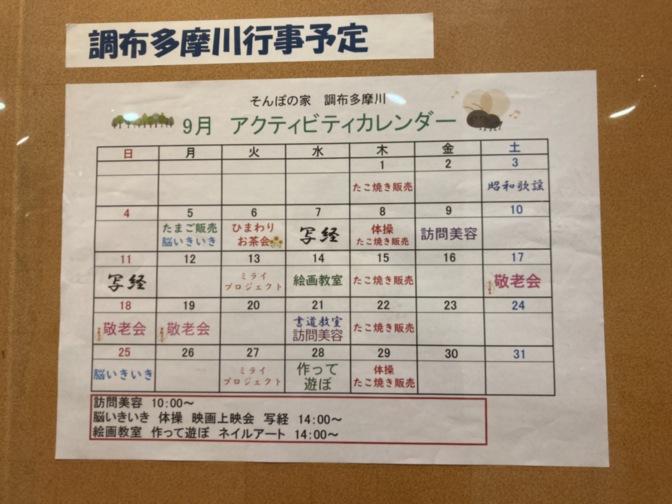 調布多摩川行事予定
そんぽの家 調布多摩川
9月 アクティビティカレンダー
日 月 火 水 木 金 土
1 2 3
たこ焼き販売 昭和歌謡
4 5 6 7 8 9 10
たまご販売 ひまわり 写経 体操 訪問美容
脳いきいき お茶会 たこ焼き販売
11 12 13 14 15 16 17
写経 ミライ 絵画教室 たこ焼き販売 敬老会
プロジェクト
18 19 20 21 22 23 24
敬老会 敬老会 書道教室 たこ焼き販売
訪問美容
25 26 27 28 29 30 31
脳いきいき ミライ 作って 体操
プロジェクト 遊ぼ たこ焼き販売
訪問美容 10:00~
脳いきいき 体操 映画上映会 写経 14:00~
絵画教室 作って遊ぼ ネイルアート 14:00~